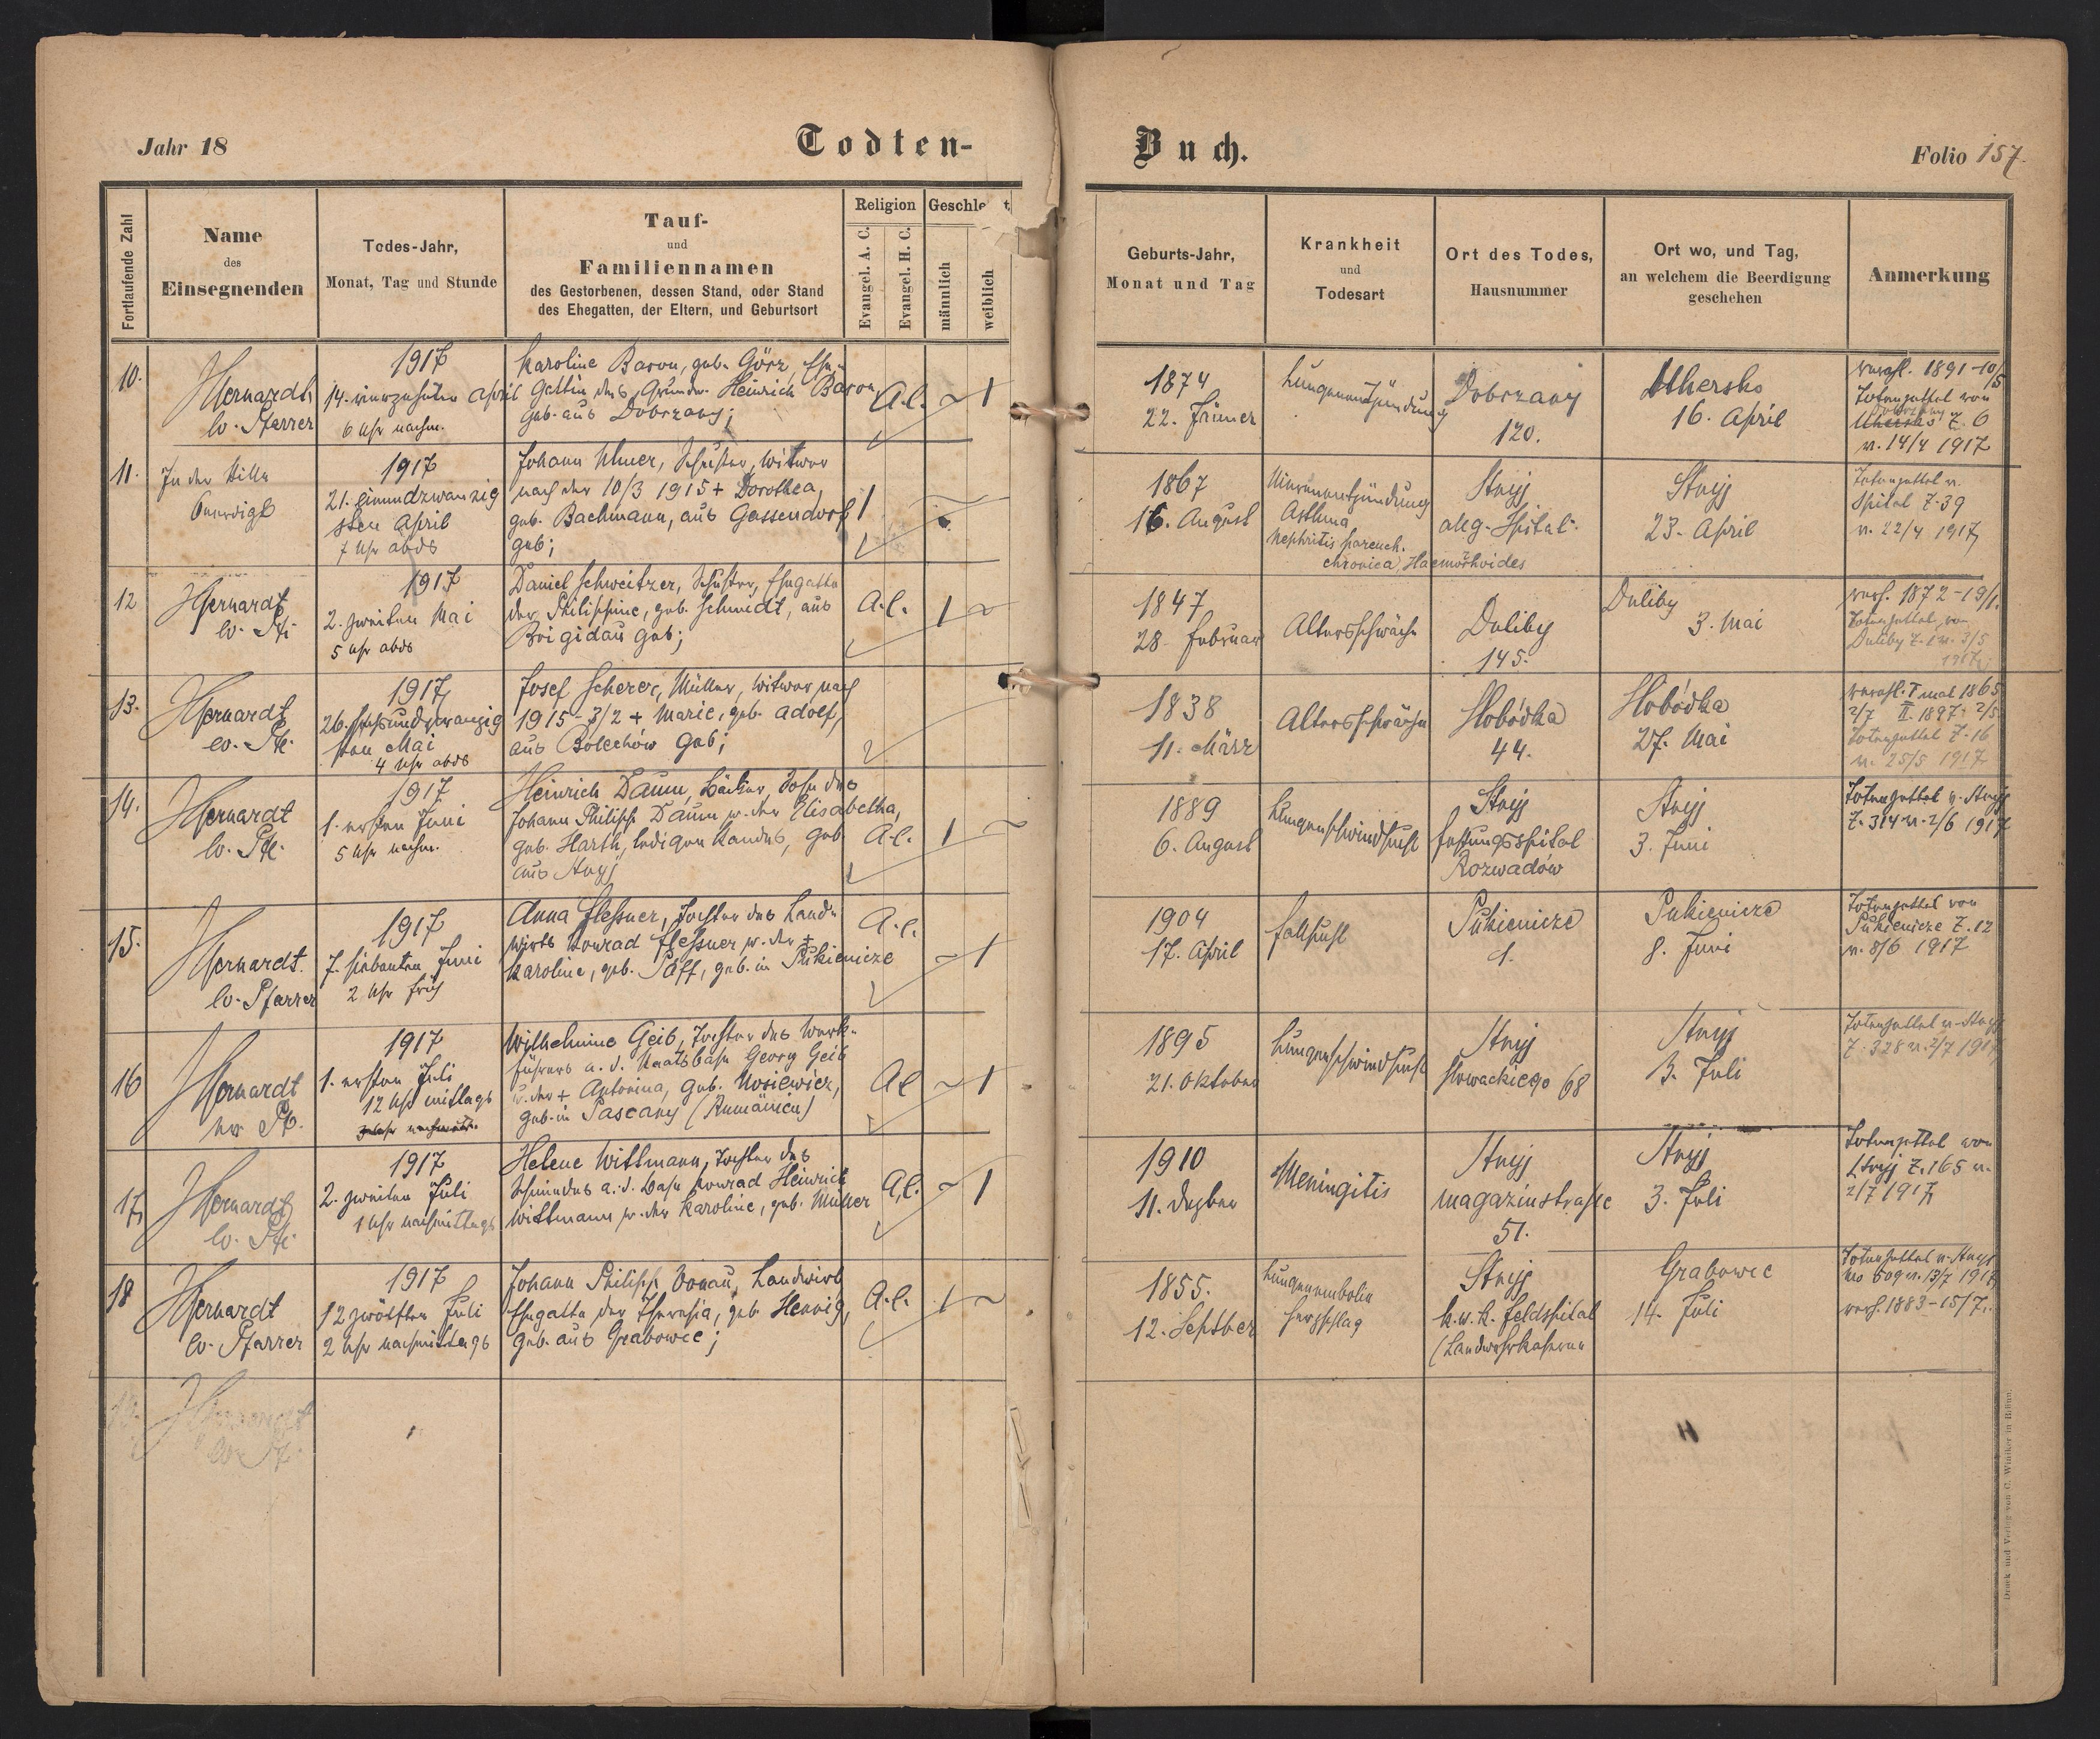 Jahr 18
Todten-
Buch.
Folio 157.
Fortlaufende Zahl
Name
des
Einsegnenden
Todes-Jahr,
Monat, Tag und Stunde
Tauf-
und
Familiennamen
des Gestorbenen, dessen Stand, oder Stand
des Ehegatten, der Eltern, und Geburtsort
Religion
Evangel. A. C.
Evangel. H. C.
männlich
weiblich
Geburts-Jahr,
Monat und Tag
Krankheit
und
Todesart
Ort des Todes,
Hausnummer
Ort wo, und Tag,
an welchem die Beerdigung
geschehen
Anmerkung
10.
ev. Pfarrer
1917
14. vierzehnten April
6 Uhr nachm.
Karoline Baron, geb. Görz,
Gattin des Heinrich Baron,
geb. aus Dobrzany;
A.C. ~ 1
1874
22. Jänner
Lungenentzündung
Dobrzany
120.
Uhersko
16. April
verehl. 1891-10/5
Totenzettel von
Dobrzany
Uhersko Z. 6
v. 14/4 1917
11.
In der Stille
beerdigt
1917
21. einundzwanzig
sten April
7 Uhr abds
Johann Schuster, Witwer
nach der 10/3 1915 + Dorothea,
geb. Bachmann, aus Gassendorf
geb;
1
1867
16. August
Nierenentzündung
Asthma
Nephritis parench.
chronica, Haemorrhoides
Stryj
allg. Spital
Stryj
23. April
Totenzettel v.
Spital Z. 39
v. 22/4 1917
12
1917
2. zweiten Mai
5 Uhr abds
Daniel Schweitzer, Schuster, Ehegatte
der Philippine, geb. Schmidt, aus
Brigidau geb;
A.C. 1 ~
1847
28. Februar
Altersschwäche
Duliby
145.
Duliby
3. Mai
verh. 1872-19/1.
Totenzettel von
Duliby Z. 1 v. 3/5
1917
13.
1917
26. sechsundzwanzig
sten Mai
4 Uhr abds
Josef Scherer, Müller, Witwer nach
1915-3/2 + Marie, geb. Adolf,
aus Bolechów geb;
1838
11. März
Altersschwäche
Slobódka
44.
Slobódka
27. Mai
verehl. I mal 1865
2/7 II. 1897 2/5
Totenzettel Z. 16
v. 25/5 1917
14.
1917
1. ersten Juni
5 Uhr nachm.
Heinrich Daum, Bäcker, Sohn des
Johann Philipp Daum u. der Elisabetha,
geb. Harth, ledigen Standes, geb
aus Stryj
A.C. 1 ~
1889
6. August
Lungenschwindsucht
Stryj
Festungsspital
Rozwadów
Stryj
3. Juni
Totenzettel v. Stryj
Z. 314 v. 2/6 1917
15.
ev. Pfarrer
1917
7. siebenten Juni
2 Uhr früh
Anna Flessner, Tochter des Land-
wirts Konrad Flessner u. der +
Karoline, geb. Paff, geb. in Pukienicze
A.C.
~ 1
1904
17. April
Fallsucht
Pukienicze
1.
Pukienicze
8. Juni
Totenzettel von
Pukienicze Z. 12
v. 8/6 1917
16
1917
1. ersten Juli
12 Uhr mittags
Wilhelmine Geib, Tochter des Werk-
führers a. d. Staatsbahn Georg Geib
u. der + Antonina, geb. Nosiewicz,
geb. in Pascany (Rumänien)
A.C ~ 1
1895
21. Oktober
Lungenschwindsucht
Stryj
Slowackiego 68
Stryj
3. Juli
Totenzettel v. Stryj
Z. 328 v. 2/7 1917
17.
1917
2. zweiten Juli
1 Uhr nachmittags
Helene Wittmann, Tochter des
Schmiedes a. d. Bahn Konrad Heinrich
Wittmann u. der Karoline, geb. Müller
A.C. ~ 1
1910
11. Dezber
Meningitis
Stryj
Magazinstrasse
51.
Stryj
3. Juli
Totenzettel von
Stryj Z. 165 v.
2/7 1917
18
ev. Pfarrer
1917
12 zwölften Juli
2 Uhr nachmittags
Johann Philipp Donau, Landwirt
Ehegatte der Theresia, geb. Hennig,
geb. aus Grabowce;
A.C. 1 ~
1855.
12. Septber
Lungenembolie
Herzschlag
Stryj
k. u. k. Feldspital
(Landwehrkaserne
Grabowce
14. Juli
Totenzettel v. Stryj
No 509 v. 13/7 1917
verh. 1883-15/7.
Druck und Verlag von C. Winiker in Brünn.